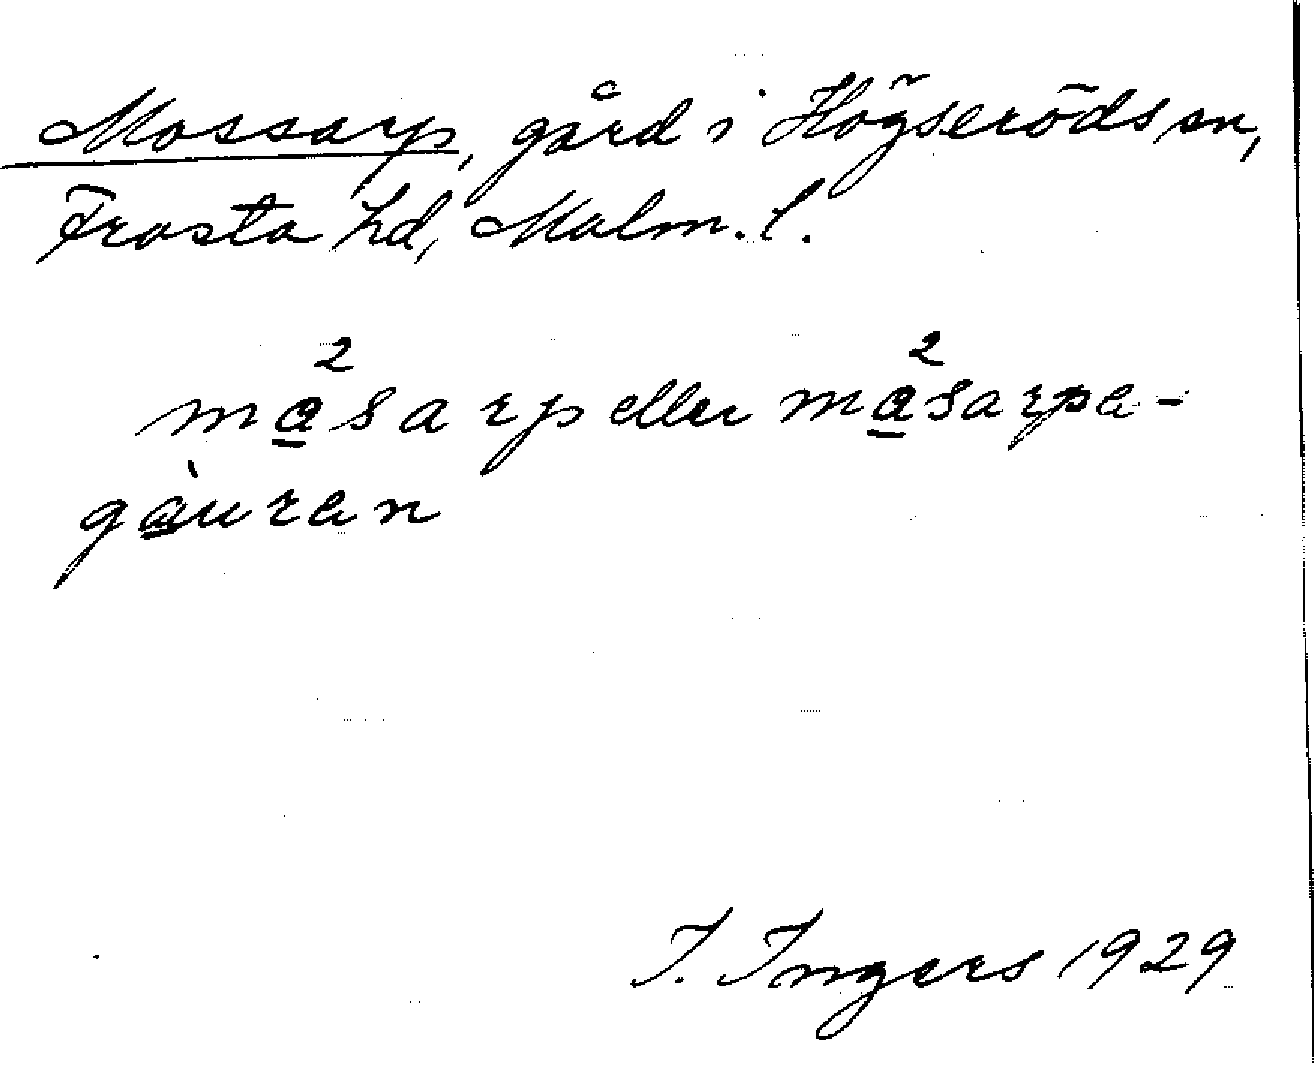 Mossarp, gård i Högseröds sn,
Frosta hd, Malm. l.
må²sarp eller må²sarpa-
gàuran
I. Ingers 1929